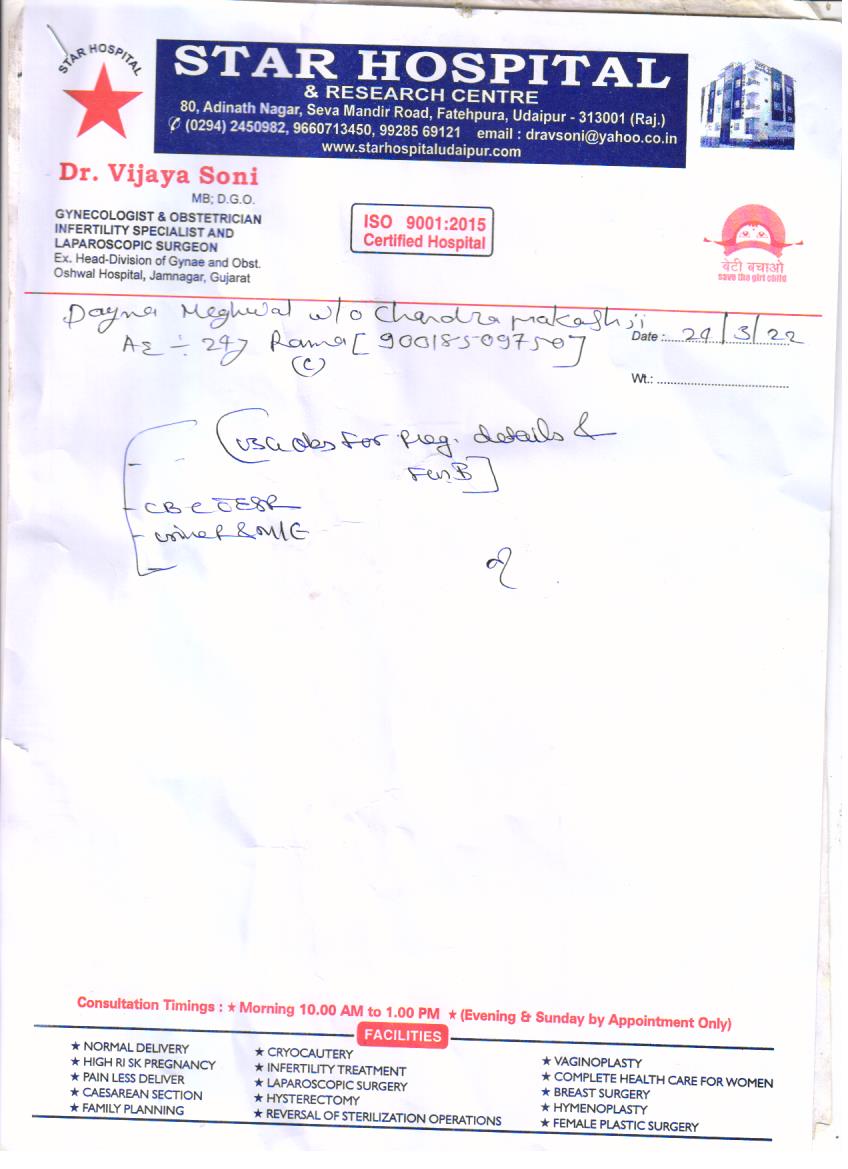 STAR HOSPITAL
STAR HOSPITAL
& RESEARCH CENTRE
80, Adinath Nagar, Seva Mandir Road, Fatehpura, Udaipur - 313001 (Raj.)
(0294) 2450982, 9660713450, 99285 69121 email : dravsoni@yahoo.co.in
www.starhospitaludaipur.com
Dr. Vijaya Soni
MB; D.G.O.
GYNECOLOGIST & OBSTETRICIAN
INFERTILITY SPECIALIST AND
LAPAROSCOPIC SURGEON
Ex. Head-Division of Gynae and Obst.
Oshwal Hospital, Jamnagar, Gujarat
ISO 9001:2015
Certified Hospital
बेटी बचाओ
save the girl child
Meghwal w/o Chandra prakash ji
Rama [900185509750]
(C)
Date : 24/3/22
Wt.:
obs For Preg. details &
FWB]
- CBC ESR
Consultation Timings : ★ Morning 10.00 AM to 1.00 PM ★ (Evening & Sunday by Appointment Only)
FACILITIES
★ NORMAL DELIVERY
★ HIGH RI SK PREGNANCY
★ PAIN LESS DELIVER
★ CAESAREAN SECTION
★ FAMILY PLANNING
★ CRYOCAUTERY
★ INFERTILITY TREATMENT
★ LAPAROSCOPIC SURGERY
★ HYSTERECTOMY
★ REVERSAL OF STERILIZATION OPERATIONS
★ VAGINOPLASTY
★ COMPLETE HEALTH CARE FOR WOMEN
★ BREAST SURGERY
★ HYMENOPLASTY
★ FEMALE PLASTIC SURGERY